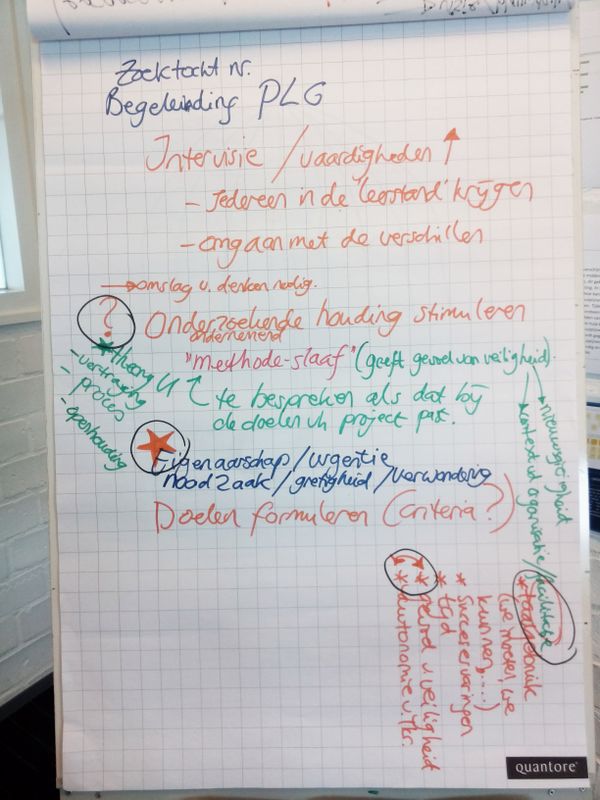 Zoektocht nr.
Begeleiding PLG
Intervisie / vaardigheden ↑
- Iedereen in de 'leerstand' krijgen
- omgaan met de verschillen
→ omslag v. denken nodig.
? Onderzoekende houding stimuleren
ondernemend
"methode-slaaf" (geeft gevoel van veiligheid).
te bespreken als dat bij
de doelen v/h project past.
* theory U
- vertraging
- proces
- open houding
Eigenaarschap / urgentie
noodzaak / gretigheid / verwondering
Doelen formuleren (criteria?)
→ nieuwsgierigheid
→ context v/d organisatie / facilitatie
* taalgebruik
(we moeten, we
kunnen, ....)
* succeservaringen
* tijd
* gevoel v veiligheid
* autonomie v. lkr.
quantore